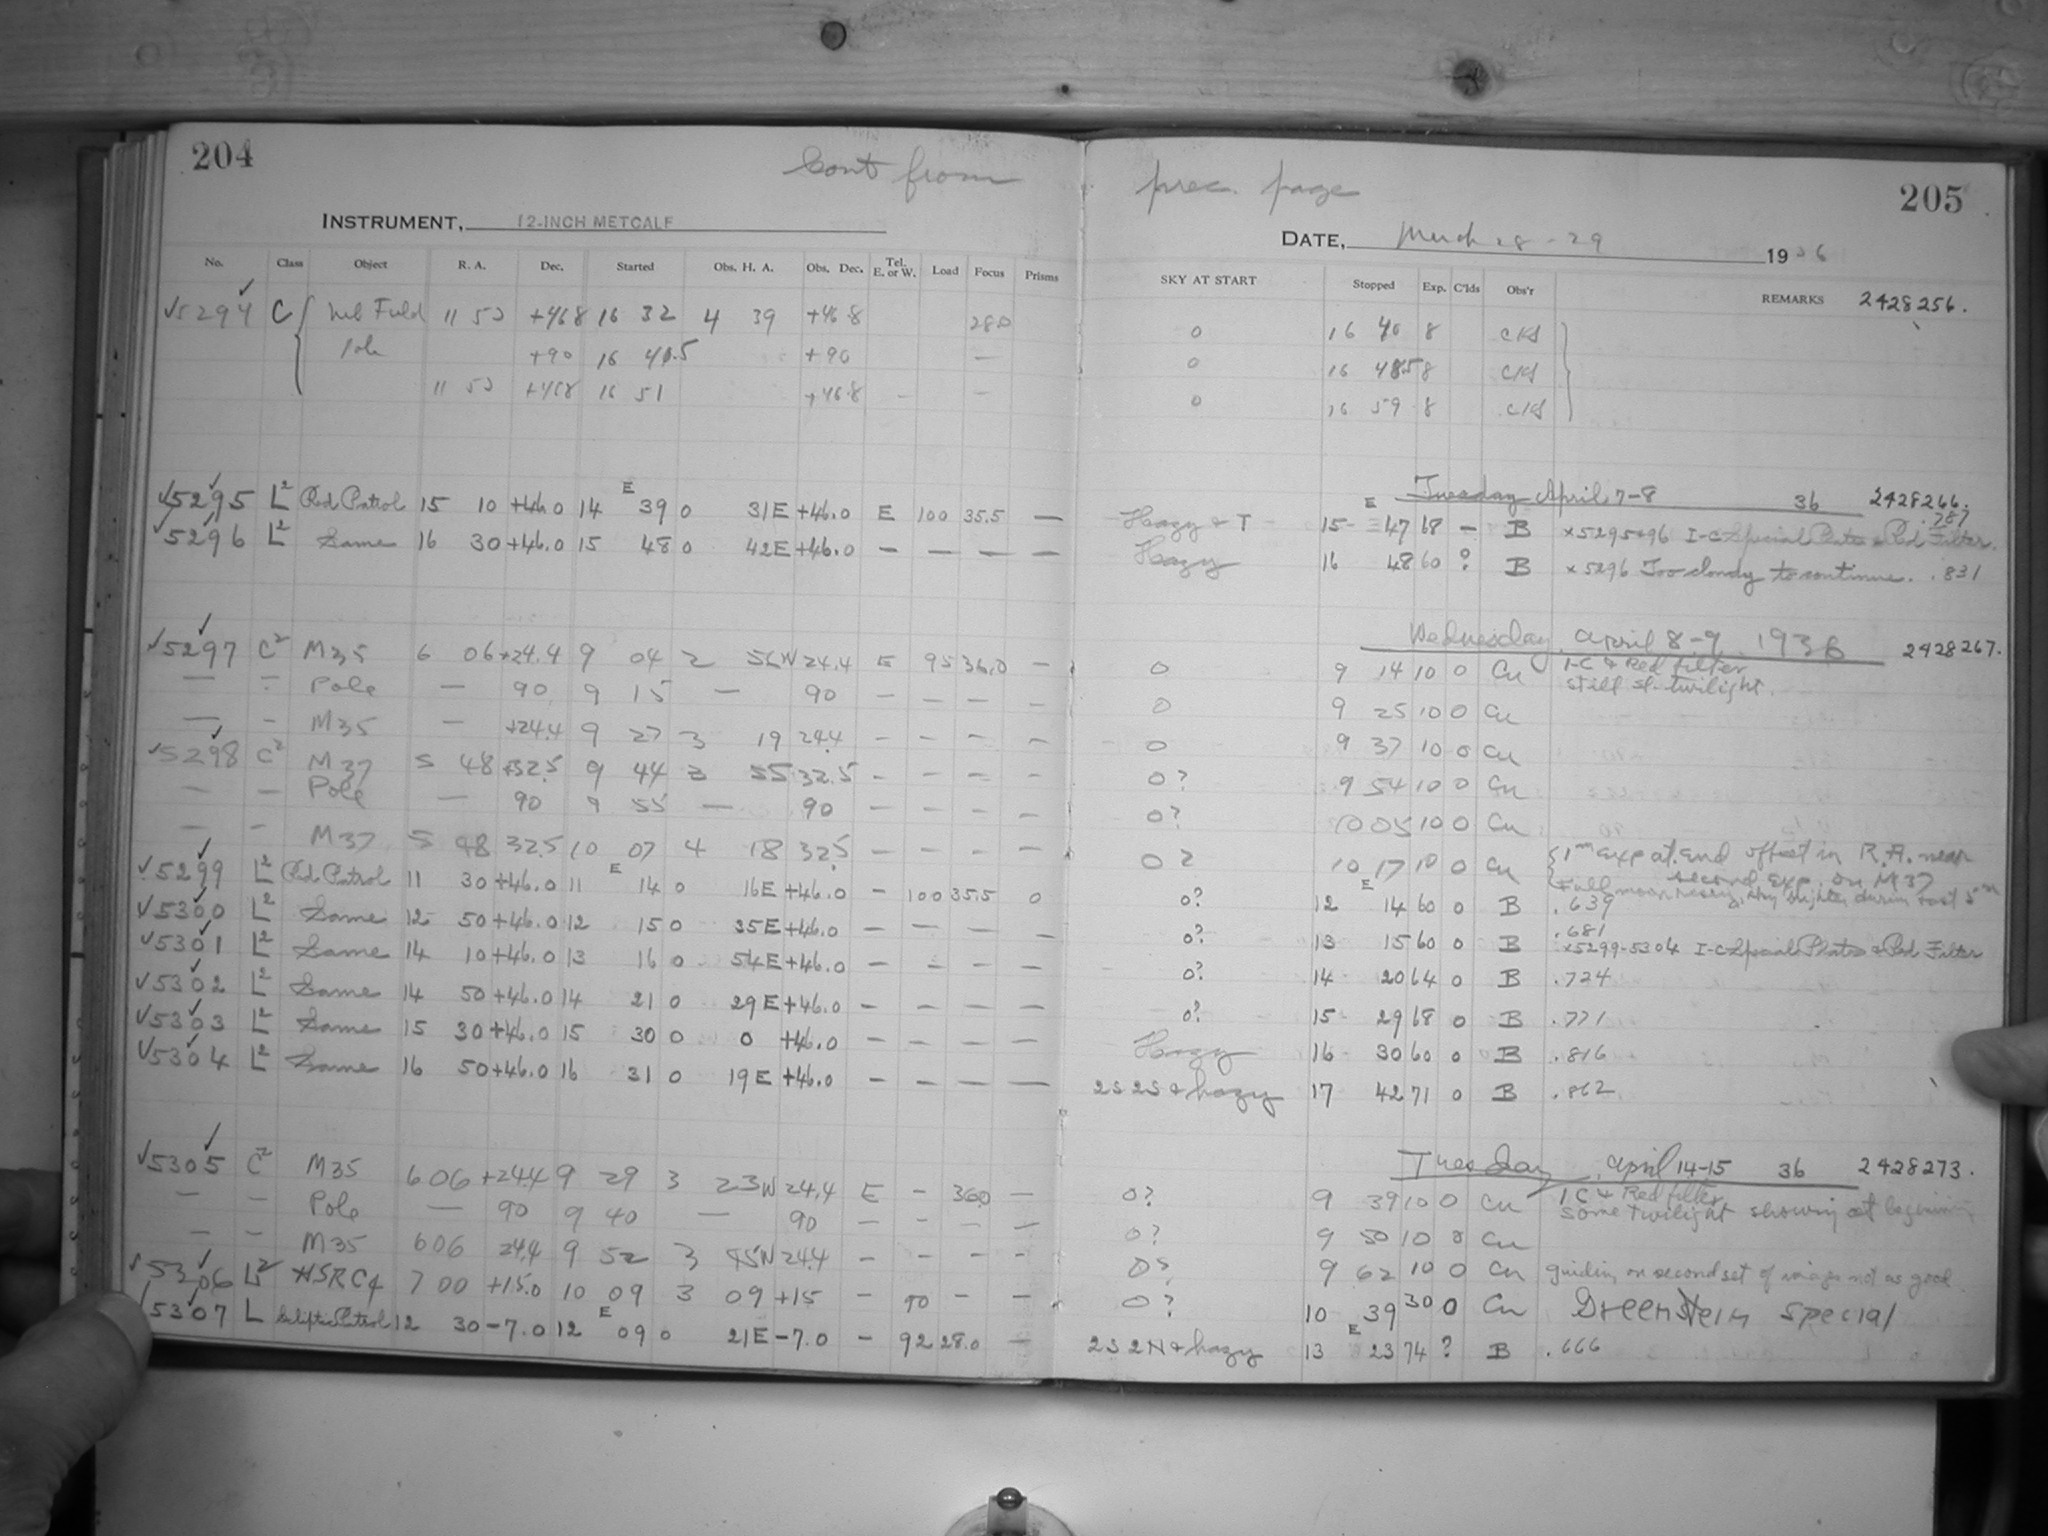 204
Cont from prec. page
205
INSTRUMENT, 12-INCH METCALF
DATE, March 28-29 1936
No. Class Object R. A. Dec. Started Obs. H. A. Obs. Dec. Tel. E. or W. Load Focus Prisms SKY AT START Stopped Exp. C'lds Obs'r REMARKS 2428256.
✓5294 C 11 50 +46.8 16 32 4 39 +46.8 28.0 0 16 40 8
Pole +90 16 40.5 +90 — 0 16 48.5 8
11 50 +46.8 16 51 +46.8 - — 0 16 59 8
Tuesday April 7-8 36 2428266.
✓5295 L² Red Patrol 15 10 +46.0 14 E 39 0 31E +46.0 E 100 35.5 — Hazy + T 15 E 47 68 — B ×5295+96 I-C Special Plates & Red Filter. .787
✓5296 L² Same 16 30 +46.0 15 48 0 42E +46.0 — — — — Hazy 16 48 60 ? B ×5296 Too cloudy to continue. .831
Wednesday, April 8-9, 1936 2428267.
✓5297 C² M35 6 06 +24.4 9 04 2 56W 24.4 E 95 36.0 — 0 9 14 10 0 Cu I-C & Red filter
still sl. twilight.
— — Pole — 90 9 15 — 90 — — — — 0 9 25 10 0 Cu
— — M35 — +24.4 9 27 3 19 24.4 — — — — 0 9 37 10 0 Cu
✓5298 C² M37 5 48 +32.5 9 44 3 55 32.5 — — — — 0? 9 54 10 0 Cu
— — Pole — 90 9 55 — 90 — — — — 0? 10 05 10 0 Cu
— — M37 5 48 32.5 10 07 4 18 32.5 — — — — 0? 10 17 10 0 Cu {1ᵐ exp at end offset in R.A. near
second exp. on M37
✓5299 L² Red Patrol 11 30 +46.0 11 E 14 0 16E +46.0 — 100 35.5 0 0? 12 E 14 60 0 B .639
Full moon, hazy, sky brighter during last 5ᵐ
✓5300 L² Same 12 50 +46.0 12 15 0 35E +46.0 — — — — 0? 13 15 60 0 B .681
×5299-5304 I-C Special Plates & Red Filter
✓5301 L² Same 14 10 +46.0 13 16 0 54E +46.0 — — — — 0? 14 20 64 0 B .724
✓5302 L² Same 14 50 +46.0 14 21 0 29E +46.0 — — — — 0? 15 29 68 0 B .771
✓5303 L² Same 15 30 +46.0 15 30 0 0 +46.0 — — — — Hazy 16 30 60 0 B .816
✓5304 L² Same 16 50 +46.0 16 31 0 19E +46.0 — — — — 2S 2S & hazy 17 42 71 0 B .862
Tuesday, April 14-15 36 2428273.
✓5305 C² M35 6 06 +24.4 9 29 3 23W 24.4 E — 36.0 — 0? 9 39 10 0 Cu I-C & Red filter
some twilight showing at beginning
— — Pole — 90 9 40 — 90 — — — — 0? 9 50 10 0 Cu
— — M35 6 06 24.4 9 52 3 45W 24.4 — — — — 0? 9 62 10 0 Cu guiding on second set of images not as good
✓5306 L² HSRC4 7 00 +15.0 10 09 3 09 +15 — 90 — — 0? 10 39 30 0 Cu Greenstein special
✓5307 L Ecliptic Patrol 12 30 -7.0 12 E 09 0 21E -7.0 — 92 28.0 — 2S 2N & hazy 13 E 23 74 ? B .666